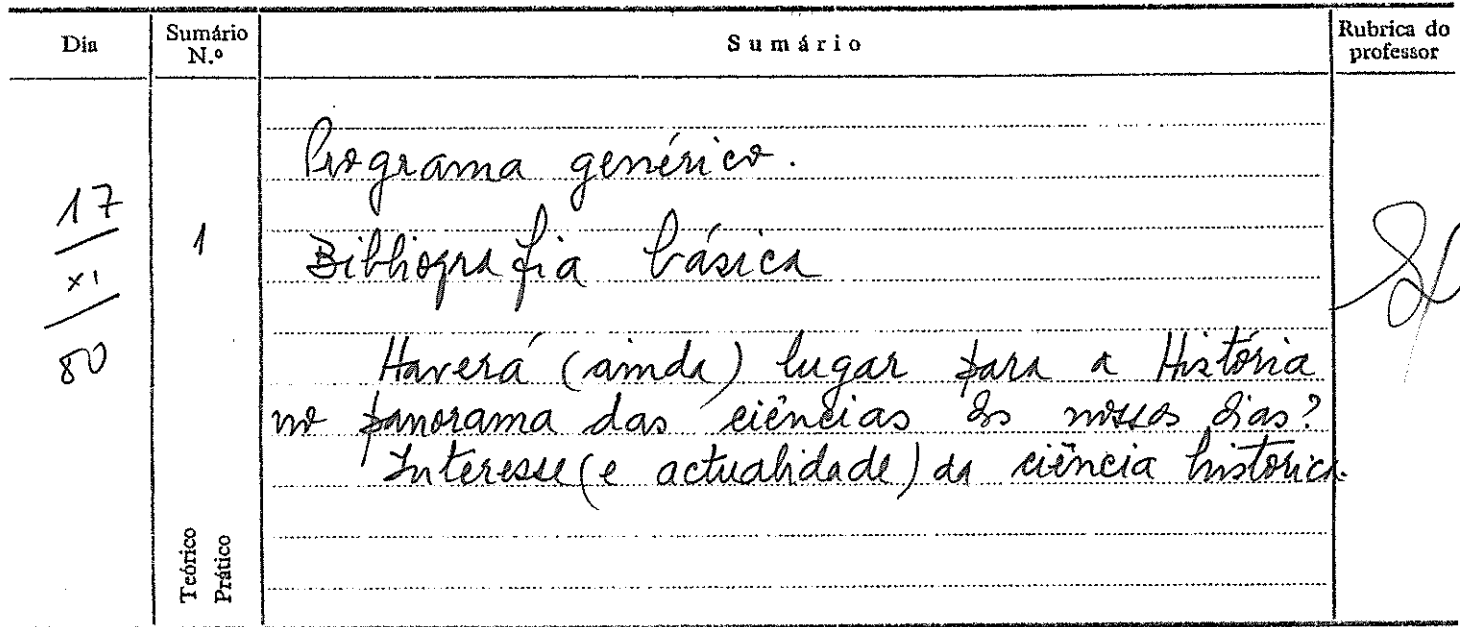 Dia
Sumário N.º
Sumário
Rubrica do professor
17
XI
80
1
Programa genérico.
Bibliografia básica
Haverá (ainda) lugar para a História
no panorama das ciências dos nossos dias?
Interesse (e actualidade) da ciência histórica.
Teórico
Prático